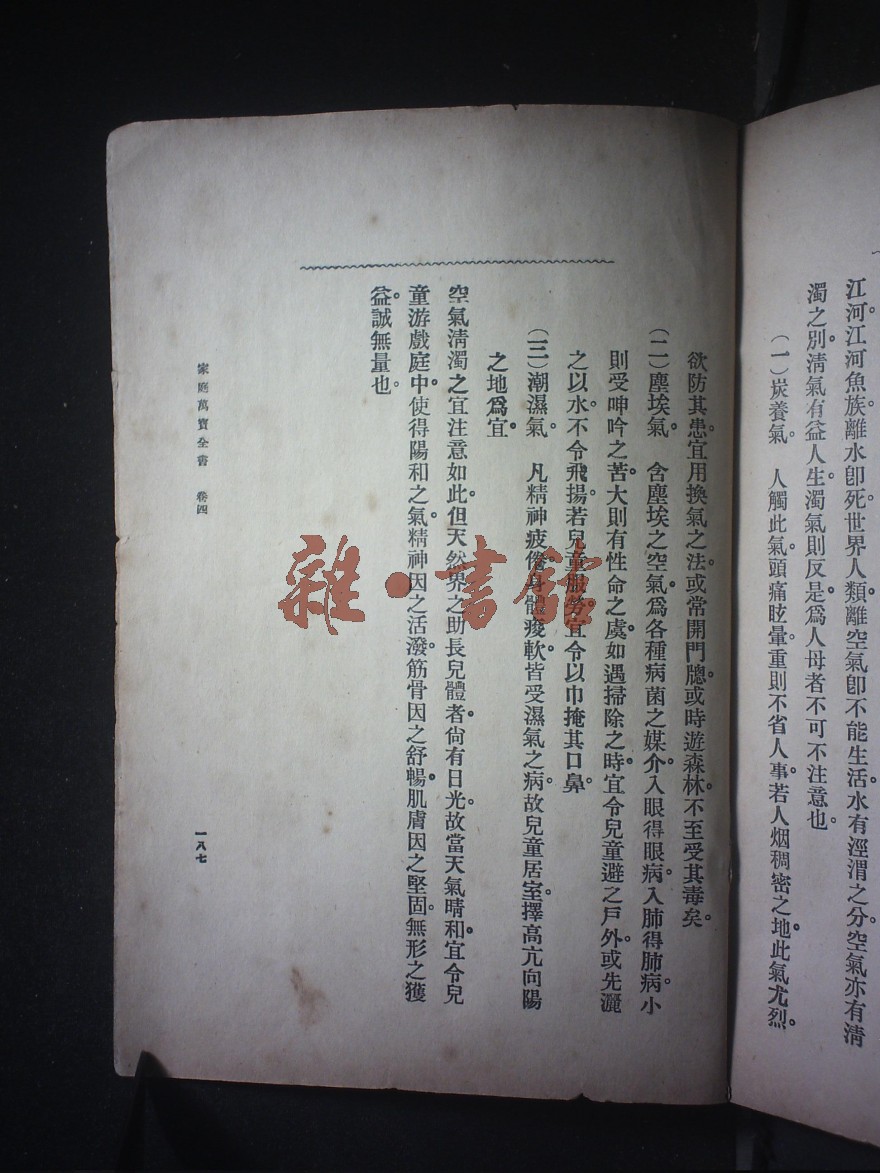 江河。江河魚族。離水卽死。世界人類。離空氣卽不能生活。水有涇渭之分。空氣亦有清
濁之別。清氣有益人生。濁氣則反是。爲人母者不可不注意也。
(一)炭養氣。 人觸此氣。頭痛眩暈。重則不省人事。若人烟稠密之地。此氣尤烈。
欲防其患。宜用換氣之法。或常開門牕。或時遊森林。不至受其毒矣。
(二)塵埃氣。 含塵埃之空氣。爲各種病菌之媒介。入眼得眼病。入肺得肺病。小
則受呻吟之苦。大則有性命之虞。如遇掃除之時。宜令兒童避之戶外。或先灑
之以水。不令飛揚。若兒童服勞。宜令以巾掩其口鼻。
(三)潮濕氣。 凡精神疲倦。身體痠軟。皆受濕氣之病。故兒童居室。擇高亢向陽
之地爲宜。
空氣清濁之宜注意如此。但天然界之助長兒體者。尙有日光。故當天氣晴和。宜令兒
童游戲庭中。使得陽和之氣。精神因之活潑。筋骨因之舒暢。肌膚因之堅固。無形之獲
益。誠無量也。
家庭萬寶全書 卷四
一八七
雜·書館